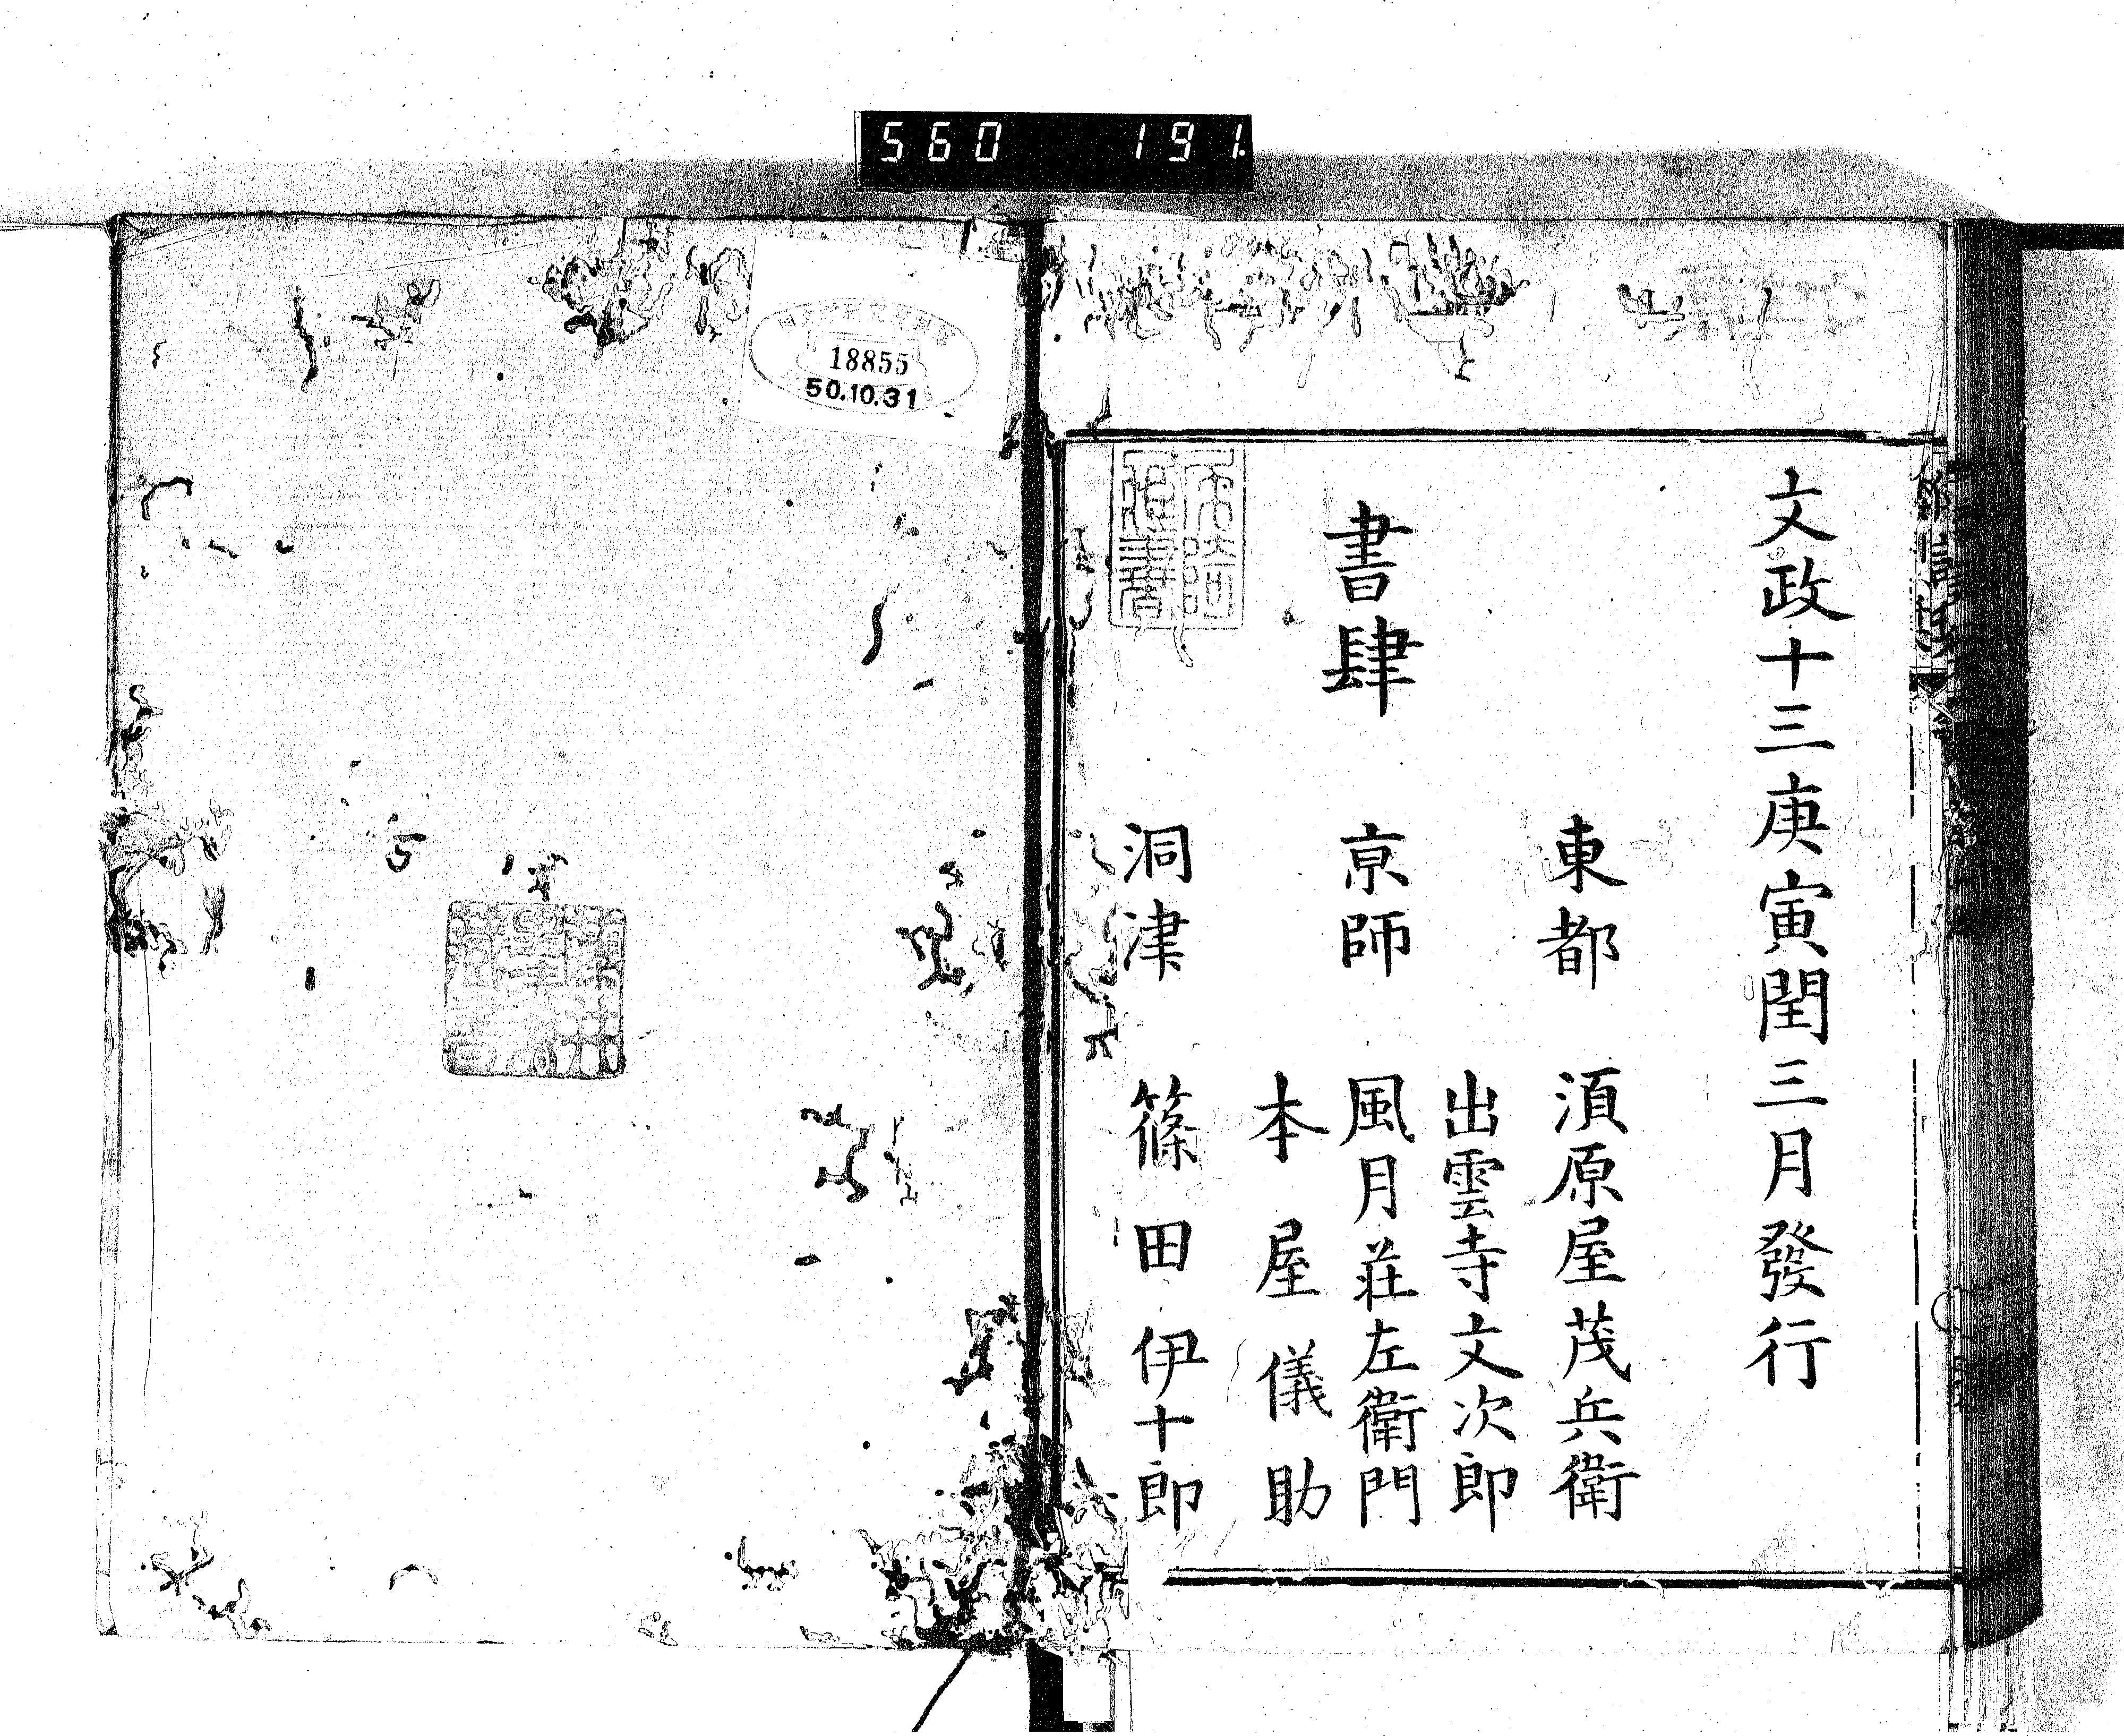 560 191.
18855
50.10.31
文政十三庚寅閏三月發行
東都 須原屋茂兵衛
出雲寺文次郎
書肆 京師 風月荘左衛門
本屋儀助
洞津 篠田伊十郎